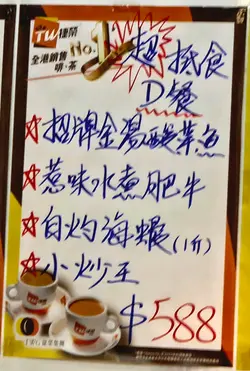 TW 捷榮
全港銷售
啡.茶
No.1
超抵食
D餐
招牌金湯酸菜魚
惹味水煮肥牛
白灼海蝦(1斤)
小炒王
$588